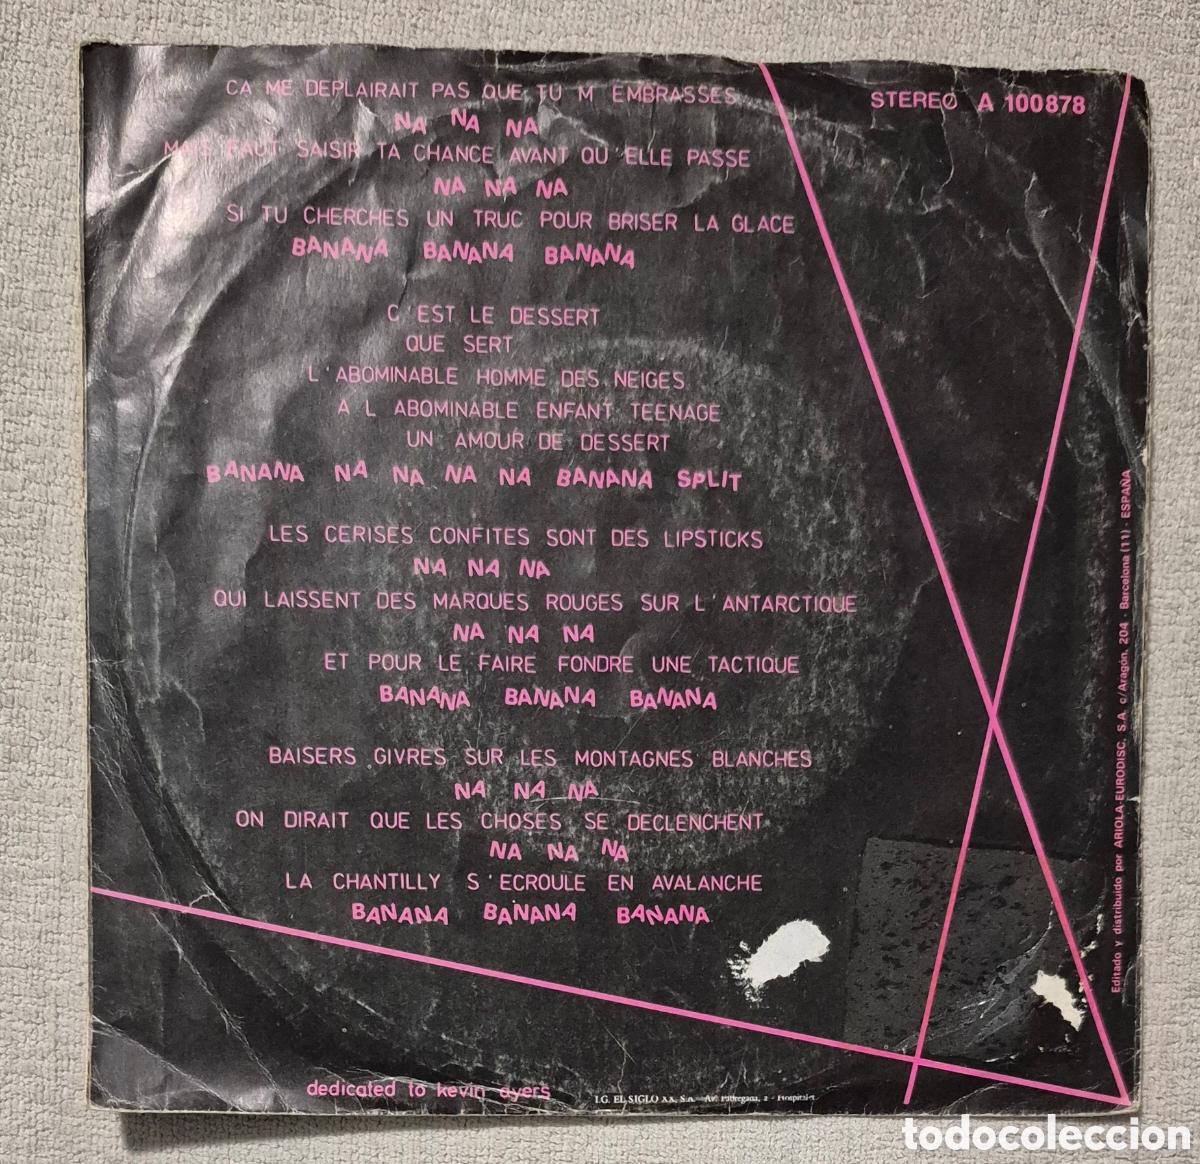 CA ME DEPLAIRAIT PAS QUE TU M EMBRASSES
NA NA NA
MAIS FAUT SAISIR TA CHANCE AVANT QU'ELLE PASSE
NA NA NA
SI TU CHERCHES UN TRUC POUR BRISER LA GLACE
BANANA BANANA BANANA
C'EST LE DESSERT
QUE SERT
L'ABOMINABLE HOMME DES NEIGES
A L ABOMINABLE ENFANT TEENAGE
UN AMOUR DE DESSERT
BANANA NA NA NA NA BANANA SPLIT
LES CERISES CONFITES SONT DES LIPSTICKS
NA NA NA
QUI LAISSENT DES MARQUES ROUGES SUR L'ANTARCTIQUE
NA NA NA
ET POUR LE FAIRE FONDRE UNE TACTIQUE
BANANA BANANA BANANA
BAISERS GIVRES SUR LES MONTAGNES BLANCHES
NA NA NA
ON DIRAIT QUE LES CHOSES SE DECLENCHENT
NA NA NA
LA CHANTILLY S'ECROULE EN AVALANCHE
BANANA BANANA BANANA
dedicated to kevin ayers
I.G. EL SIGLO XX, S.A. - Av. - Hospitalet
STEREO A 100878
Editado y distribuido por ARIOLA-EURODISC, S.A. c/Aragón, 204 - Barcelona (11) - ESPAÑA
todocoleccion